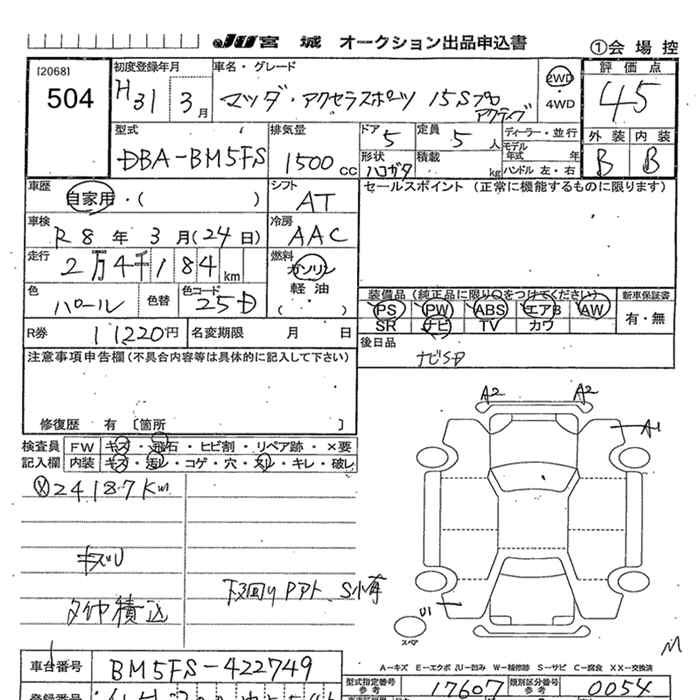 JU 宮 城 オークション出品申込書
①会 場 控
[2068]
504
初度登録年月
H31 3 月
車名・グレード
マツダ・アクセラスポーツ 15Sプロ
アクティブ
2WD
・
4WD
評 価 点
45
型式
DBA-BM5FS
排気量
1500 CC
ドア 5
定員 5 人
形状 ハコガタ
積載 kg
ディーラー・並行
モデル年式 年
ハンドル 左・右
外 装 内 装
B B
車歴
自家用・( )
シフト
AT
セールスポイント (正常に機能するものに限ります)
車検
R 8 年 3 月 (24 日)
冷房
AAC
走行
2 万 4 千 1 8 4 km
燃料
ガソリン
軽 油
( ・ )
色
パール
色替
色コード
25D
装備品 (純正品に限り○をつけてください)
PS PW ABS エアB AW
SR ナビ TV カワ
新車保証書
有・無
R券
11220円
名変期限 月 日
後日品
ナビSD
注意事項申告欄 (不具合内容等は具体的に記入して下さい)
修復歴 有 〔箇所 〕
検査員
記入欄
FW キズ・飛石・ヒビ割・リペア跡・×要
内装 キズ・汚レ・コゲ・穴・スレ・キレ・破レ
24187Km
キズU
タイヤ積込
下廻りPアト、S小有
A2
A2
A1
U1
スペア
A-キズ E-エクボ U-凹み W-補修跡 S-サビ C-腐食 XX-交換済
車台番号
BM5FS-422749
型式指定番号
参考
17607
類別区分番号
参考
0054
登録番号